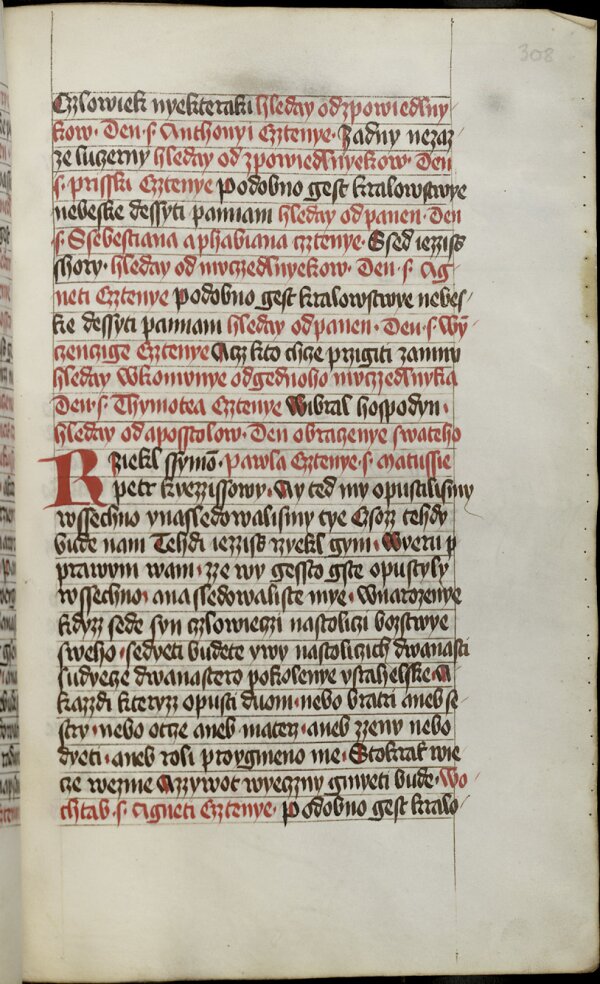 308
Czlowiek nyekteraki hleday odzpowiedlny
kow · Den · s · Anthonyi Cztenye · Zadny nezaz
ze luczerny hleday od zpowiedlnyekow · Den
s · prisski Cztenye Podobno gest kralowstwye
nebeske dessyti pannam hleday od panen · Den
s · Ssebestiana a phabiana cztenye · Ssed iezziss
s hory · hleday od muczedlnyekow · Den · s · Ag
neti Cztenye Podobno gest kralowstwye nebes
ke dessyti pannam hleday od panen · Den · s Wy
czenczige Cztenye Acz kto chcze przigiti zamnu
hleday Wkomunye odgednoho muczedlnyka
Den · s · Thymotea Cztenye Wibral hospodyn ·
hleday od aposstolow · Den obraczenye swateho
Rziekl ssymō · Pawla Cztenye · s · matussie
petr k yezzissowy · Ay ted my opustilismy
wssechno ynasledowalismy tye Czozz tehdy
bude nam Tehdi iezziss rzyekl gym · Wyeru p
prawym wam · zze wy gessto gste opustyly
wssechno · ana sledowaliste mye · Wnarozenye
kdyzz sede syn czlowieczi nastoliczi bozstwye
sweho · sedyeti budete ywy nastoliczich dwanasti
sudyecze dwanastero pokolenye ysrahelske · A
kazzdi kteryzz opusti duom · nebo bratri aneb se
stry · nebo otcze aneb materz · aneb zzeny nebo
dyeti · aneb roli pro ygmeno me · Stokrat wie
cze wezme Azzywot wyeczny gmyeti bude · Wo
chtab · s · Agneti Cztenye · Podobno gest kralo